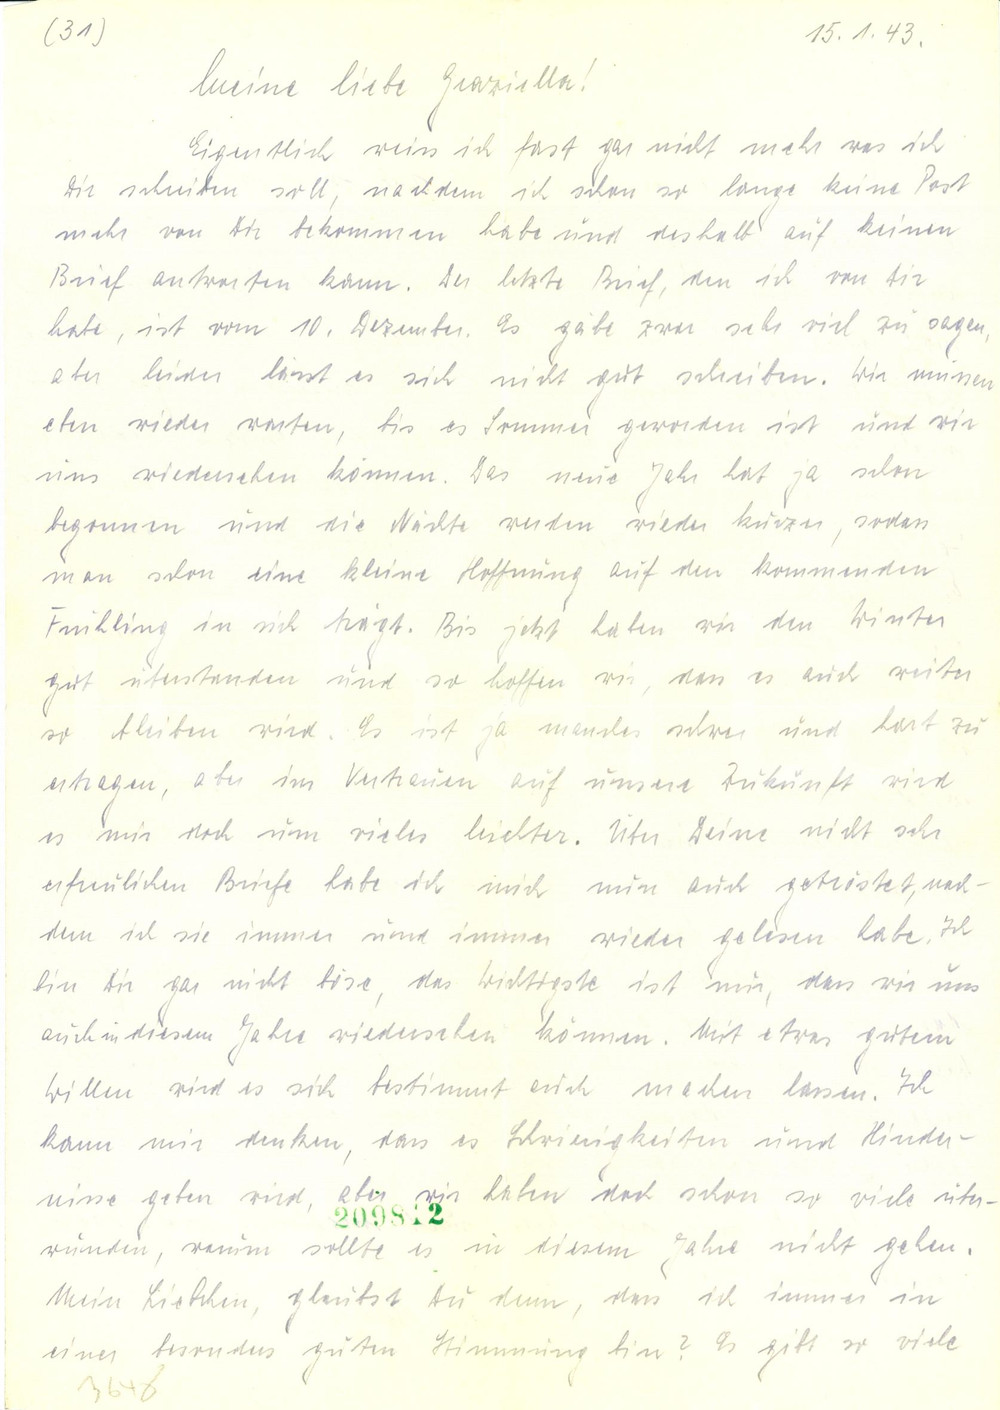 (31)
15.1.43.
Meine liebe Graziella!
Eigentlich weiss ich fast gar nicht mehr was ich
Dir schreiben soll, nachdem ich schon so lange keine Post
mehr von Dir bekommen habe und deshalb auf keinen
Brief antworten kann. Der letzte Brief, den ich von Dir
habe, ist vom 10. Dezember. Es gäbe zwar sehr viel zu sagen,
aber leider lässt es sich nicht gut schreiben. Wir müssen
eben wieder warten, bis es Sommer geworden ist und wir
uns wiedersehen können. Das neue Jahr hat ja schon
begonnen und die Nächte werden wieder kürzer, sodass
man schon eine kleine Hoffnung auf den kommenden
Frühling in sich trägt. Bis jetzt haben wir den Winter
gut überstanden und so hoffen wir, dass es auch weiter
so bleiben wird. Es ist ja manches schwer und hart zu
ertragen, aber im Vertrauen auf unsere Zukunft wird
es mir doch um vieles leichter. Über Deine nicht sehr
erfreulichen Briefe habe ich mich nun auch getröstet, nach-
dem ich sie immer und immer wieder gelesen habe. Ich
bin Dir gar nicht böse, das Wichtigste ist mir, dass wir uns
auch in diesem Jahre wiedersehen können. Mit etwas gutem
Willen wird es sich bestimmt auch machen lassen. Ich
kann mir denken, dass es Schwierigkeiten und Hinder-
nisse geben wird, aber wir haben doch schon so viele über-
wunden, warum sollte es in diesem Jahre nicht gehen.
209812
Mein Liebchen, glaubst Du denn, dass ich immer in
einer besonders guten Stimmung bin? Es gibt so viele
3648